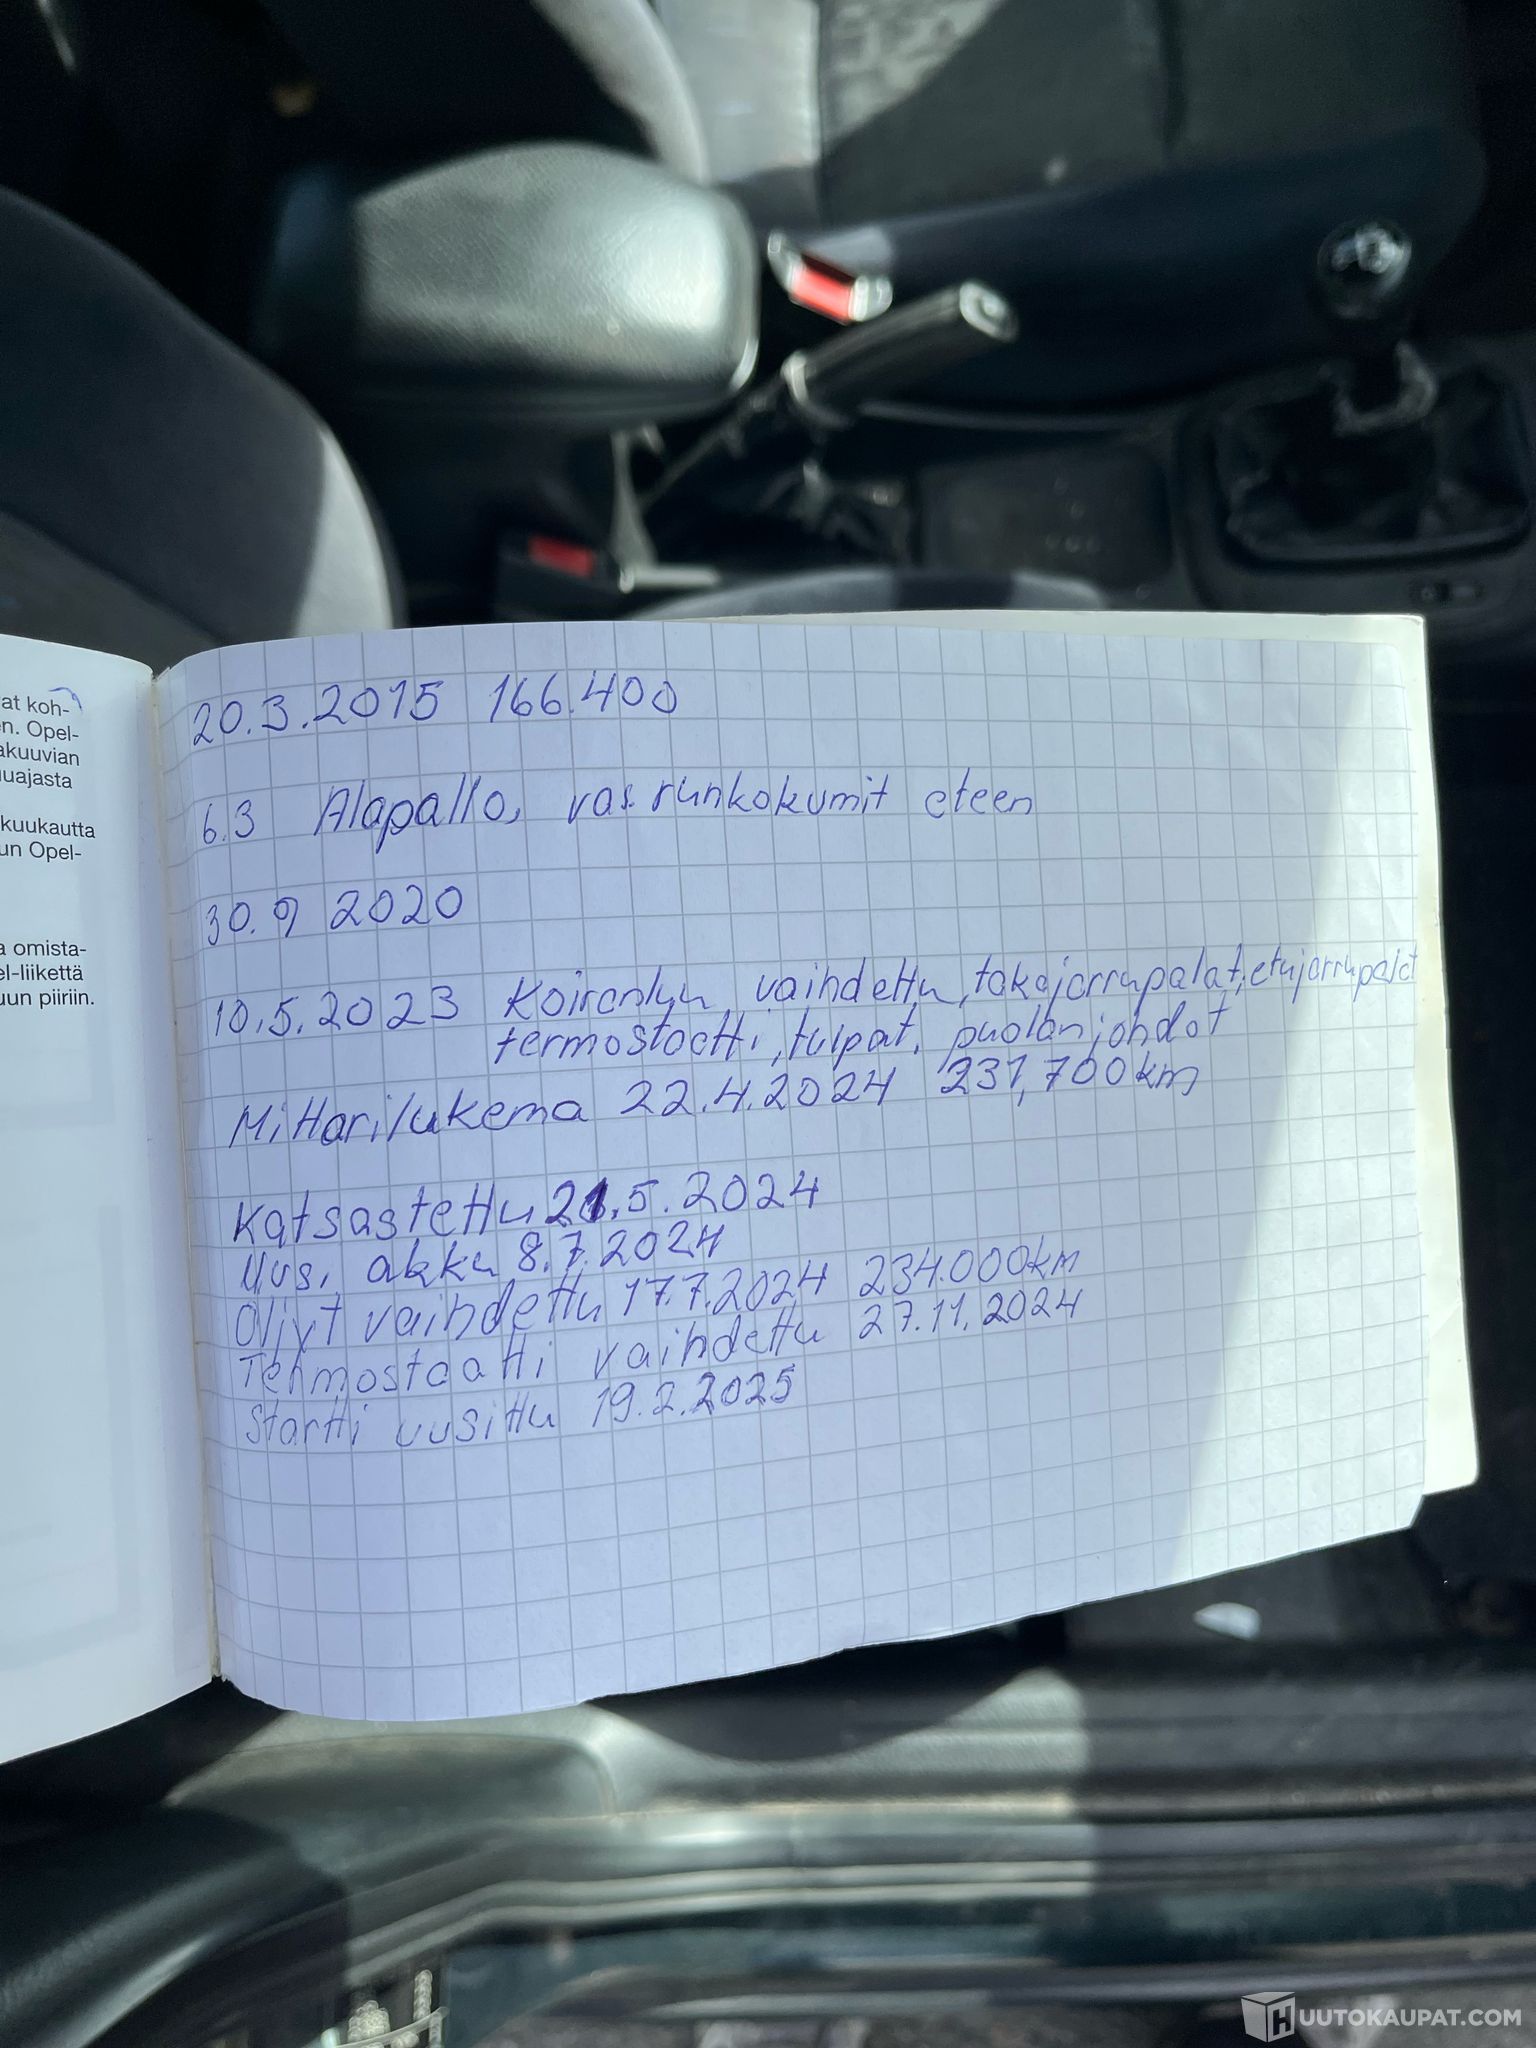 at koh-
en. Opel-
akuuvian
uuajasta
kuukautta
un Opel-
a omista-
el-liikettä
uun piiriin.
20.3.2015 166.400
6.3 Alapallo, vas. runkokumit eteen
30.9 2020
10.5.2023 Koiranluu vaihdettu, takajarrupalat, etujarrupalat
termostaatti, tulpat, puolan johdot
Mittarilukema 22.4.2024 231,700km
Katsastettu 21.5.2024
Uusi akku 8.7.2024
Öljyt vaihdettu 17.7.2024 234.000km
Termostaatti vaihdettu 27.11.2024
Startti uusittu 19.2.2025
HUUTOKAUPAT.COM